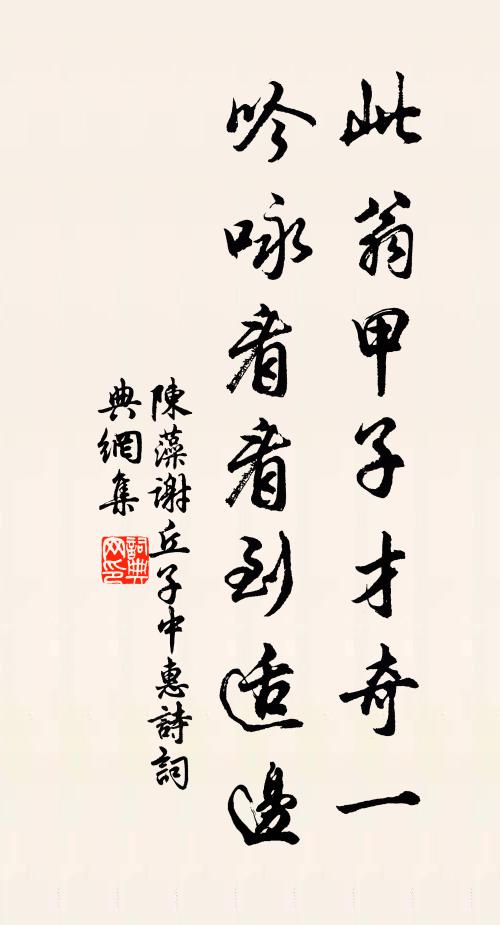 此翁甲子才奇一
吟咏看看到适邊
陳藻謝丘子中惠詩詞
典網集
詞典
网印